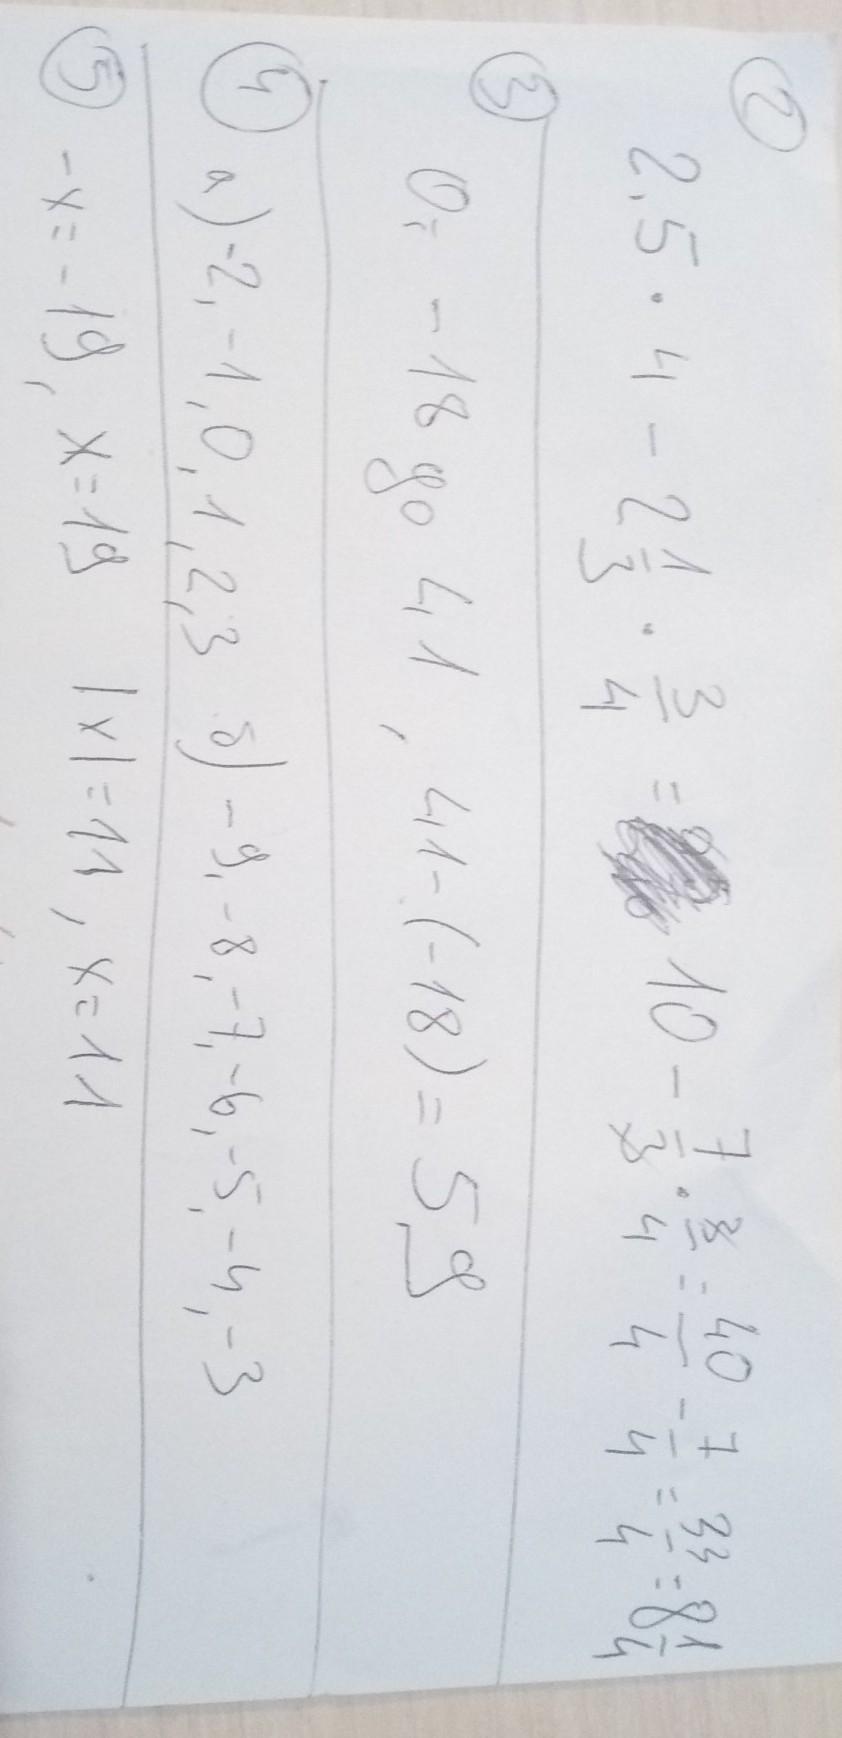 ② 2,5 · 4 - 2 1/3 · 3/4 = 10 - 7/3 · 3/4 = 40/4 - 7/4 = 33/4 = 8 1/4
③ -18 go 41, 41-(-18) = 59
④ a) -2, -1, 0, 1, 2, 3 б) -9, -8, -7, -6, -5, -4, -3
⑤ -x = -19, x = 19 |x| = 11, x = 11